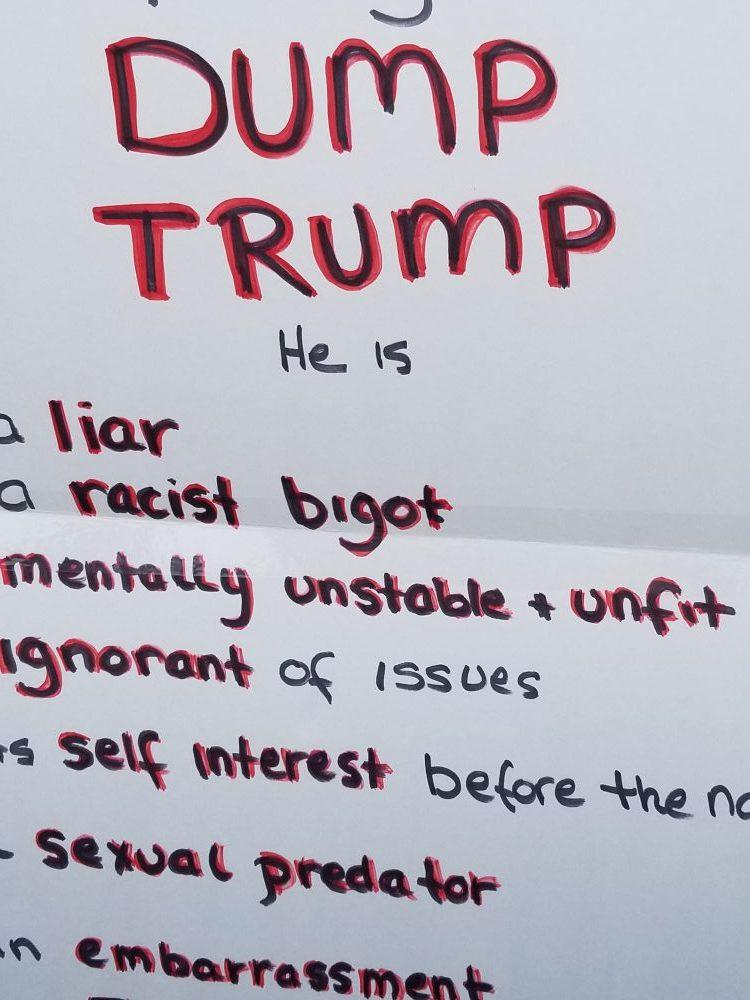 DUMP
TRUMP
He is
a liar
a racist bigot
mentally unstable + unfit
ignorant of issues
self interest before the
sexual predator
embarrassment